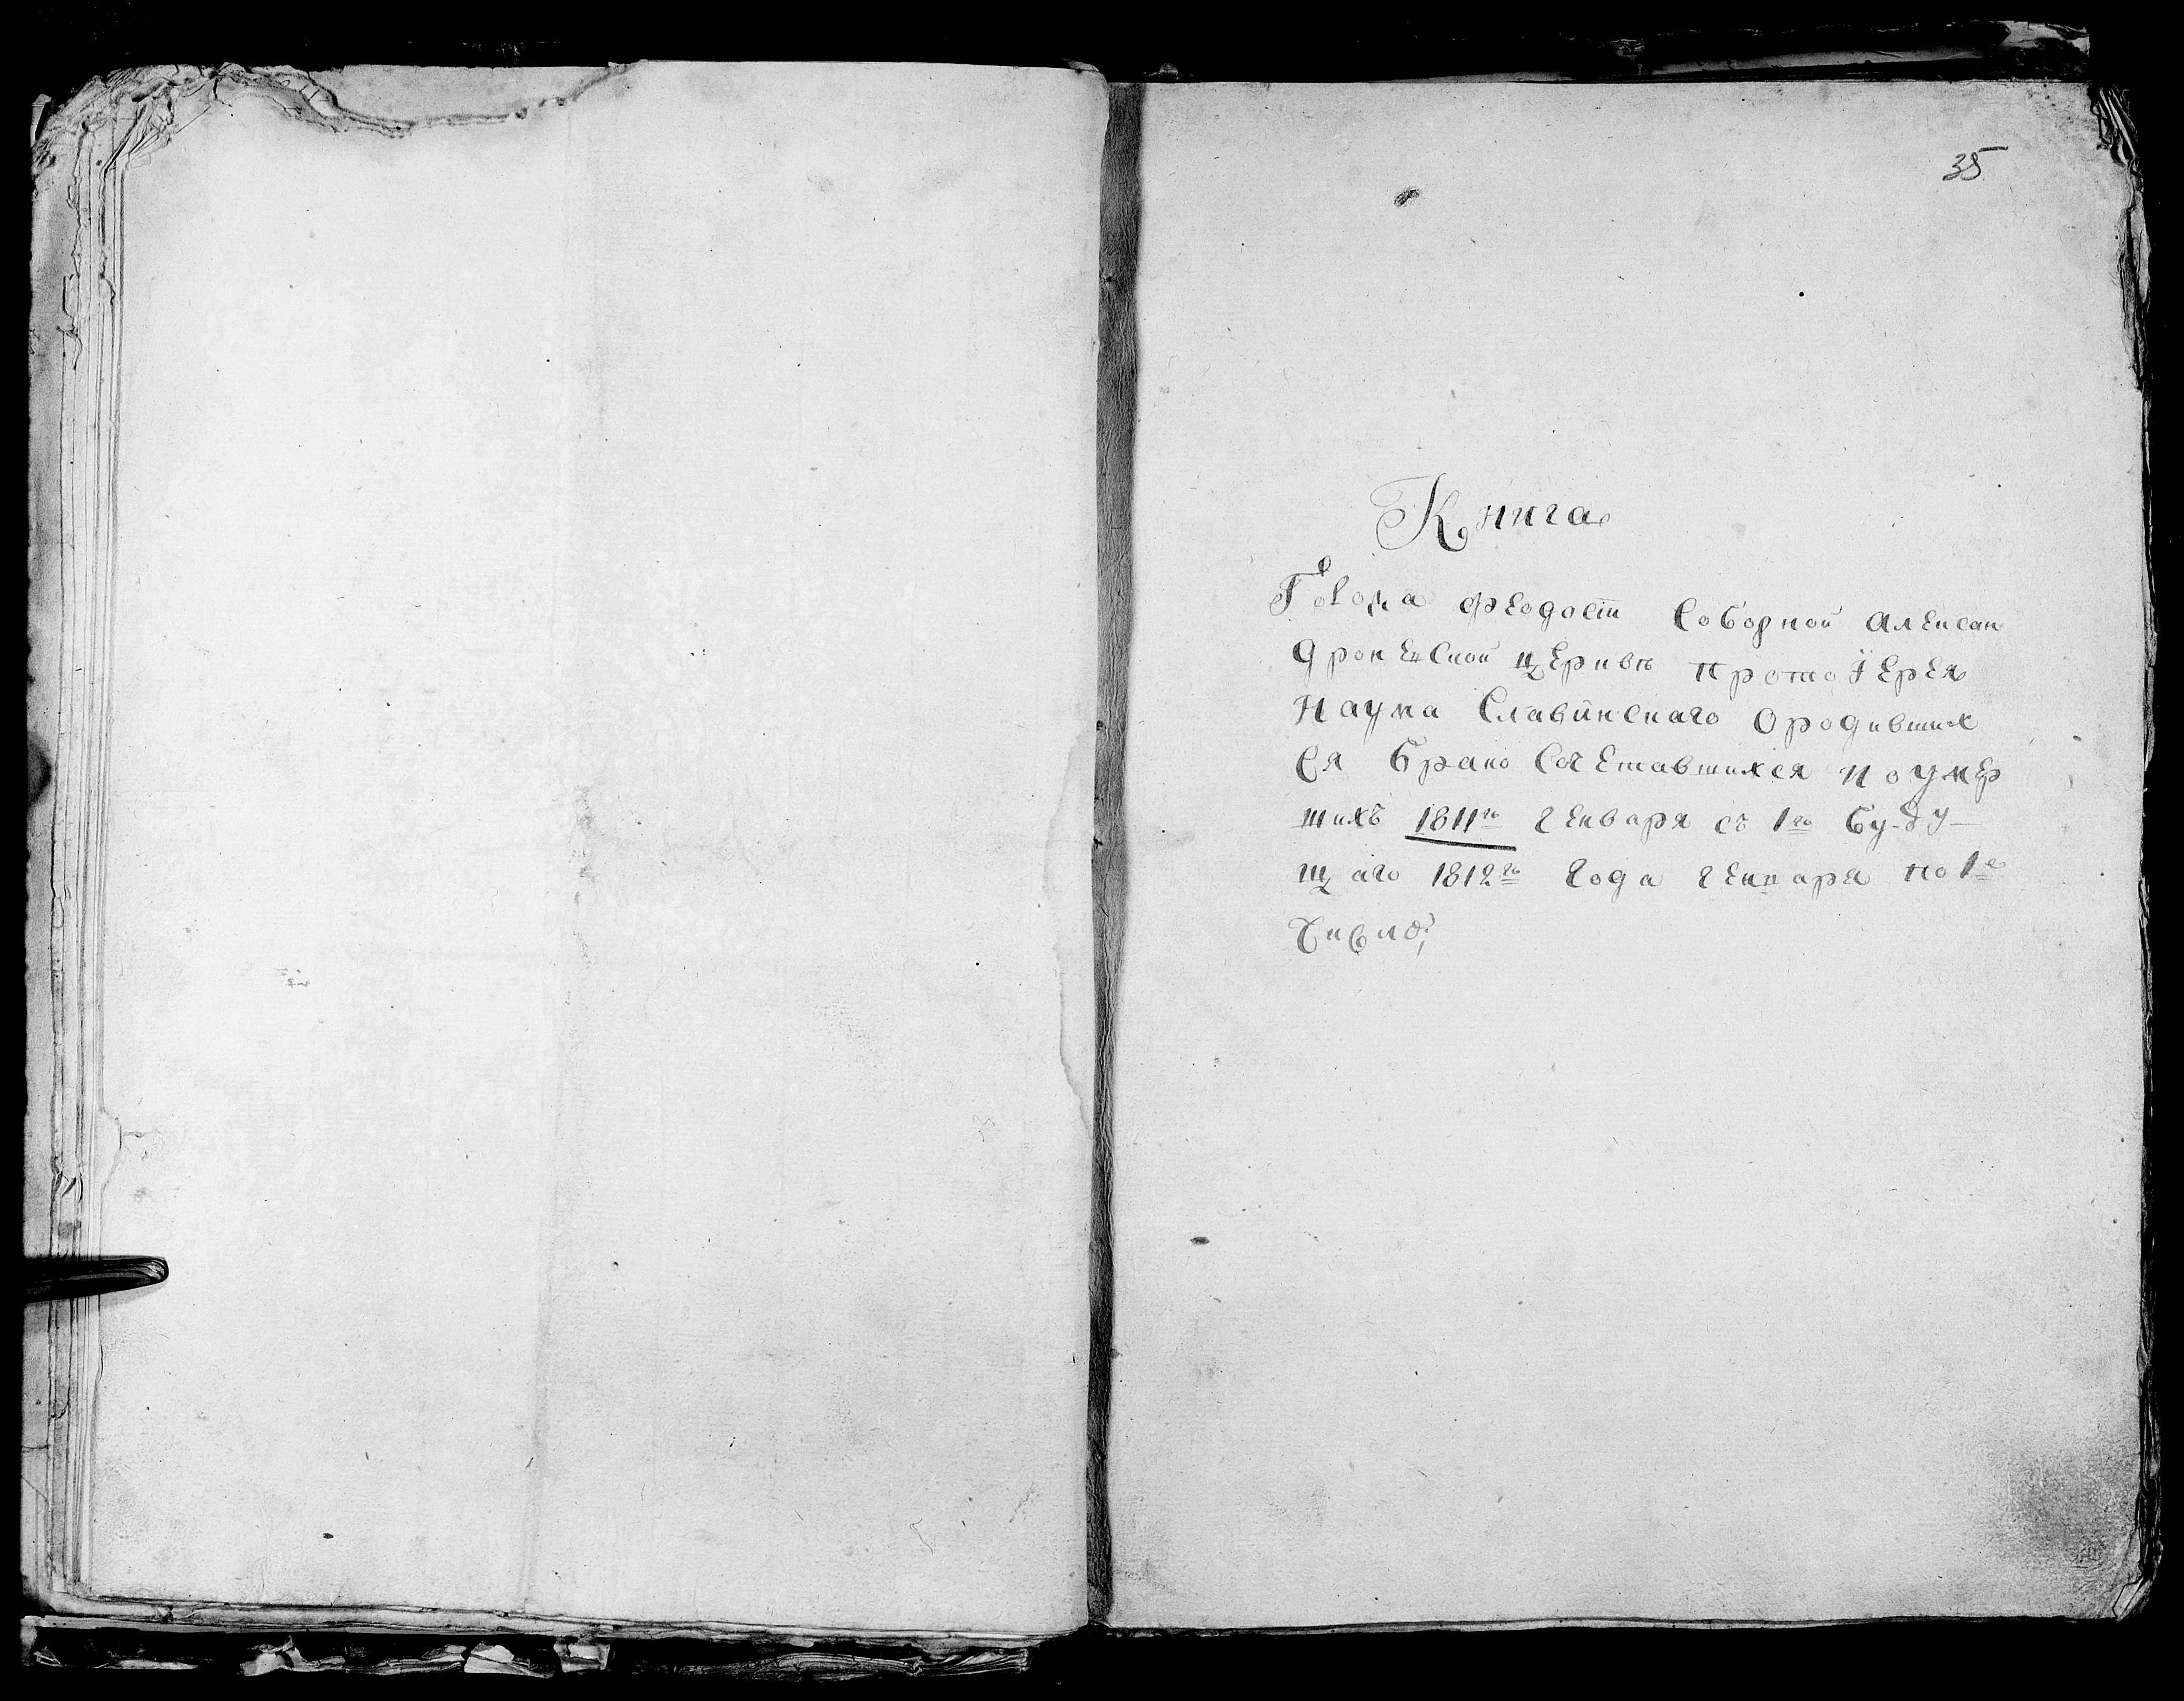 35
Книга
Города Феодосіи Соборной Алексан
дроневской церкви протоіерея
Наума Славинскаго о родивших
ся брако сочетавшихся и о умер
шихъ 1811го генваря съ 1го буду-
щаго 1812го года генваря по 1е
число;